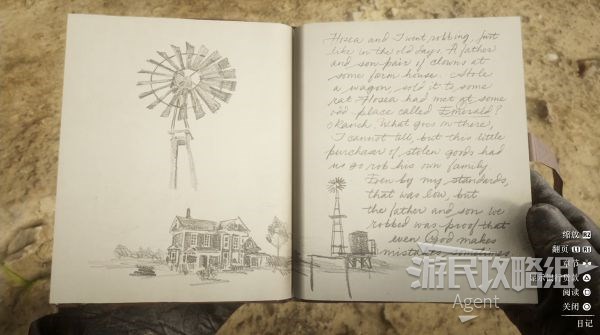 Hosea and I went robbing, just
like in the old days. A father
and son pair of clowns at
some farm house. Stole
a wagon, sold it to some
rat Hosea had met at some
odd place called Emerald?
Ranch. What goes on there,
I cannot tell, but this little
purchaser of stolen goods had
us go rob his own family
Even by my standards,
that was low, but
the father and son we
robbed was proof that
even God makes
mistakes sometimes
缩放 R2
翻页 L1 R1
章节
显示悬赏贷款
阅读
关闭
日记
游民攻略组
Agent